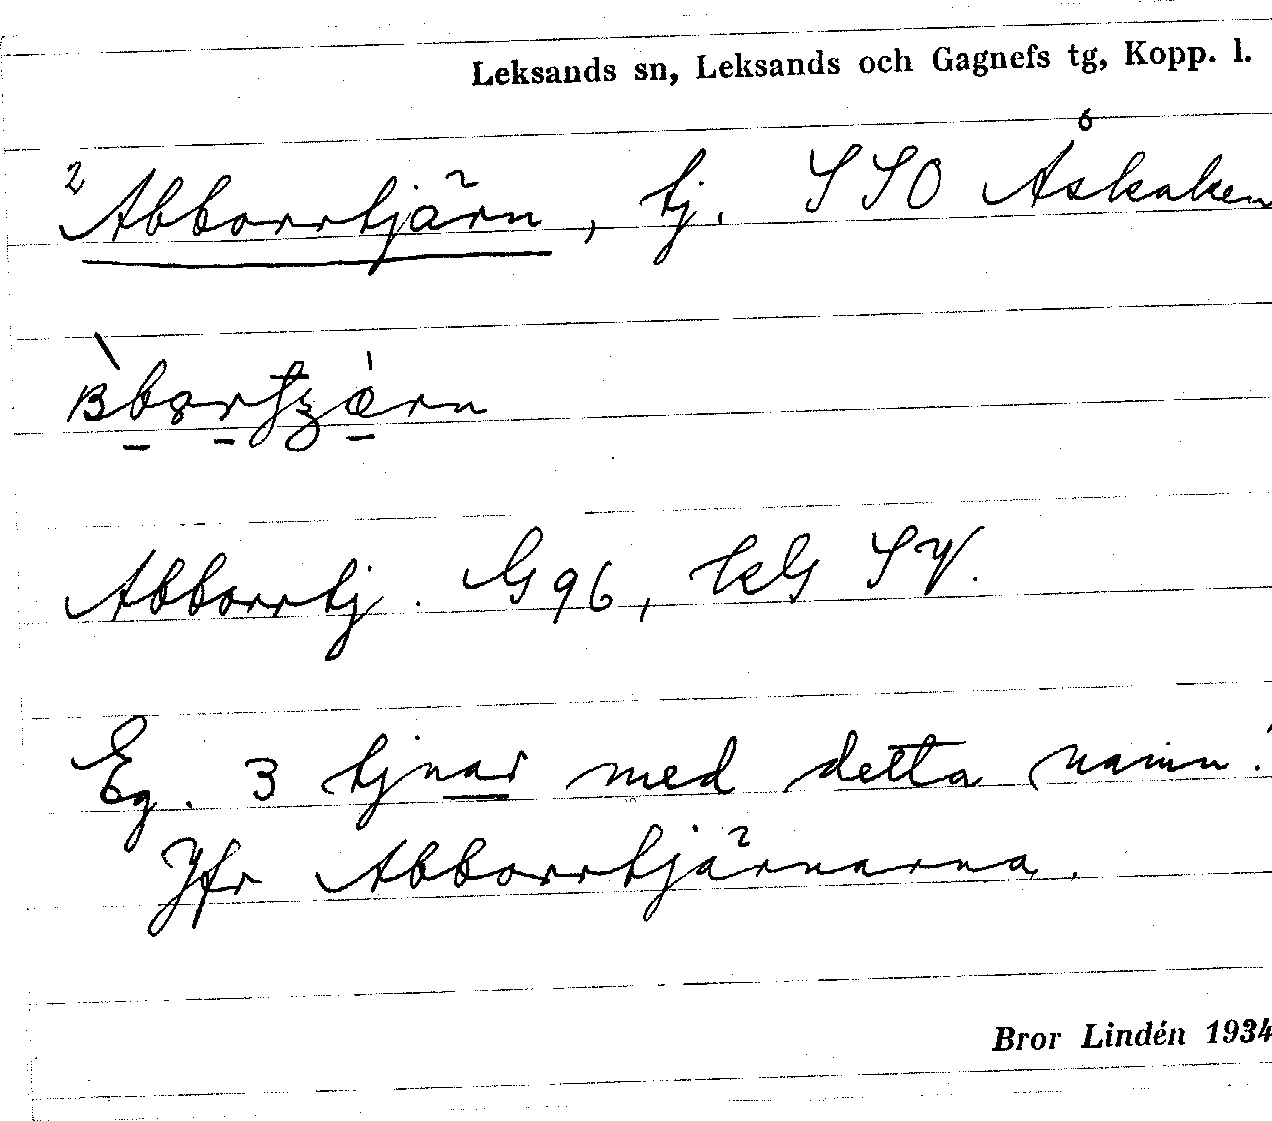 Leksands sn, Leksands och Gagnefs tg, Kopp. l.
² Abborrtjärn, tj. SSO Åskaken
Abborrtj. G96, SV.
Eg. 3 tjnar med detta namn.
Jfr Abborrtjärnarna.
Bror Lindén 1934